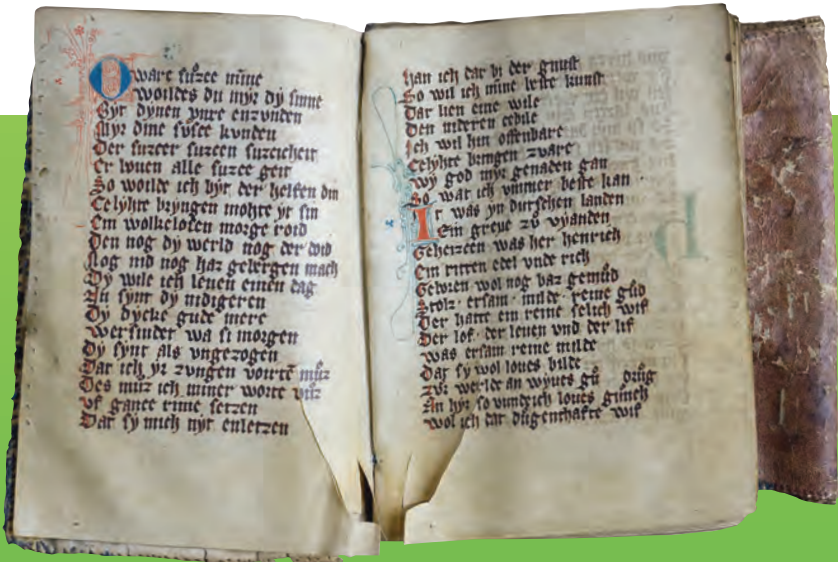 O ware sůzee mīne
woildes du myr dy sinne
Myr dine sůsee kunden
Der suzeer suzeen suzeicheit
Er vven alle suzee geit
So woilde ich hyr der helfen din
Celyhte bryngen mohte yr sin
Ein wolkelosen morge roid
Den nog dy werld nog der doid
Nog nid nog haz gebergen mach
Dy wile ich leuen einen dag
Nu synt dy nidigeren
Dy dycke gude mere
wersinder wa si morgen
Dy synt als vngezogen
Dat ich yr zvngen voirtē můz
Des můz ich miner worte vůz
vf gance rime setzen
Dat sy mich nyt enletzen
han ich dar bi der gunst
So wil ich mine beste kunst
Dar lien eine wile
Den nideren ceile
Ich wil hin offenbare
Celyhte bringen zvare
wy god myr genaden gan
So wat ich vmmer beste kan
Ir was yn dutschen landen
Ein greue zů vyanden
Geheizeen was her henrich
Ein ritter edel vnde rich
Gewien wol nog baz gemůd
Stolz · ersam · milde · reine gůd
Der hatte ein reine selich wif
Der lof · der leuen vnd der lif
was ersam reine milde
Dat sy wol loues bilde
zvr werlde an wyues gů drůg
An hyr so vindich loues gůnch
wol ich dat důgenthafte wif